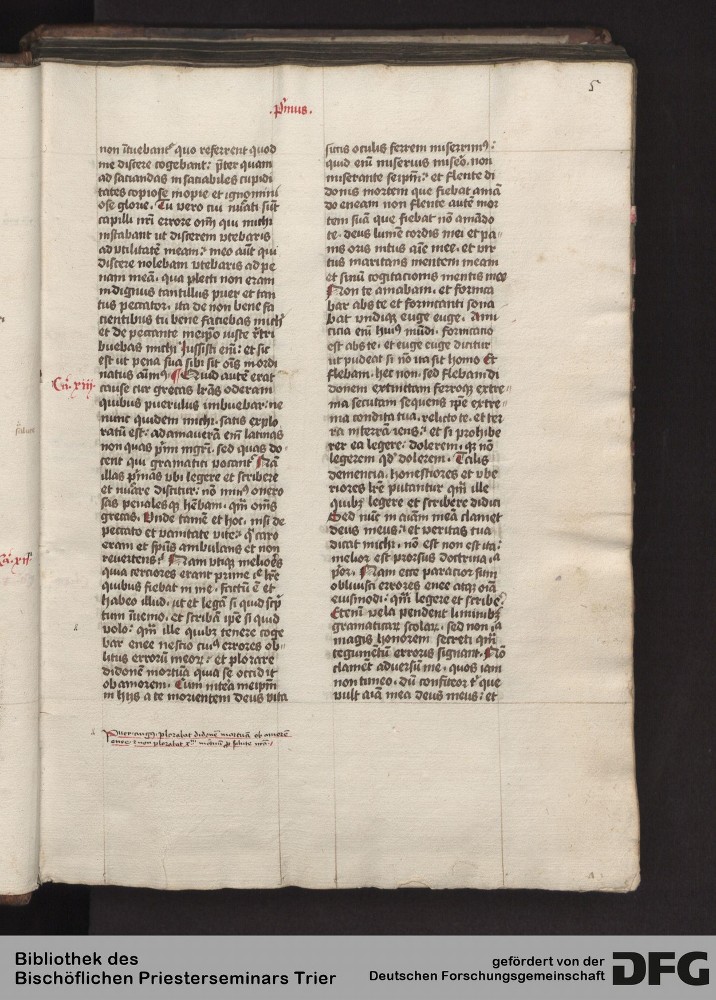 5
.p̄mus.
non ītuebantᷣ quo referrent quod
me discere cogebant: p̄ter quam
ad saciandas insaciabiles cupidi
tates copiose inopie et ignomini
ose glorie. Tu vero cui nūati sūt
capilli nr̄i errore om̄i qui michi
instabant ut discerem vtebaris
ad vtilitatē meam: meo aūt qui
discere nolebam vtebaris ad pe
nam meā. qua plecti non eram
indignus tantillus puer et tan
tus peccator. ita de non bene fa
cientibus tu bene faciebas michi
et de peccante meip̄o iuste r̄tri
buebas michi Iussisti em̄: et sic
est ut pena sua sibi sit oīs inordi
Ca. xiii
natus aīmꝰ ¶ Quid autē erat
cause cur grecas lr̄as oderam
quibus puerulus imbuebar: ne
nunc quidem michi satis explo
ratū est: adamauerā em̄ latinas
non quas p̄mi mgr̄i. sed quas do
cent qui gramatici vocantᷣ Nā
illas p̄mas vbi legere et scribere
et nūare discitur: nō minꝰ onero
sas penalesqꝫ hēbam. qm̄ om̄s
grecas. Vnde tamē et hoc. nisi de
peccato et vanitate vite: qꝰ caro
eram et spūs ambulans et non
Ca. xii
reuertens: Nam vtiqꝫ melioēs
quia cerciores erant prime ille lr̄e
quibus fiebat in me. et factū ē et
habeo illud. ut et legā si quid scp̄
tum īuenio. et scribā ip̄e si quid
volo: qm̄ ille quibꝫ tenere coge
bar enee nescio cuiꝰ errores ob-
litus errorū meoꝝ: et plorare
didonē mortuā quia se occidit
ob amorem. Cum intea meip̄m
in hijs a te morientem deus vita
siccis oculis ferrem miserrimꝰ:
quid em̄ miserius miso. non
miserante seip̄m: et flente di
donis mortem que fiebat amā
do eneam non flente autē mor
tem suā que fiebat nō amādo
te. deus lumē cordis mei et pa
nis oris intus aīe mee. et vir
tus maritans mentem meam
et sinū cogitacionis mentis mee
Non te amabam. et fornica
bar abs te et fornicanti sona
bat vndiqꝫ euge euge. Ami
cicia em̄ huiꝰ mūdi. fornicatio
est abs te. et euge euge dicitur
ut pudeat si nō ita sit homo Et
flebam. hec non. sed flebam di
donem extinctam ferroqꝫ extre-
ma secutam sequens ip̄e extre-
ma condita tua. relicto te. et ter
ra in terrā iens: et si prohibe
rer ea legere: dolerem. qꝫ nō
legerem qd̓ dolerem. Talis
demencia. honestiores et vbe
riores lr̄e putantur qm̄ ille
quibꝫ legere et scribere didici
Sed nūc in aīam meā clamet
deus meus: et veritas tua
dicat michi. nō est non est ita:
melior est prorsus doctrina illa
p̄or. Nam ecce paracior sum
obliuisci errores enee atqꝫ oīa
eiusmodi. qm̄ legere et scribe
Etenī vela pendent liminibꝫ
gramaticaꝝ scolaꝝ. sed non illa
magis honorem secreti qm̄
tegumētū erroris signant. Nō
clament aduersū me. quos iam
non timeo. dū confiteor t̓ que
vult aīa mea deus meus: et
Puer augꝰ. plorabat didonē mortuā ob amorē
enee. et non plorabat
Bibliothek des
Bischöflichen Priesterseminars Trier
gefördert von der
Deutschen Forschungsgemeinschaft
DFG